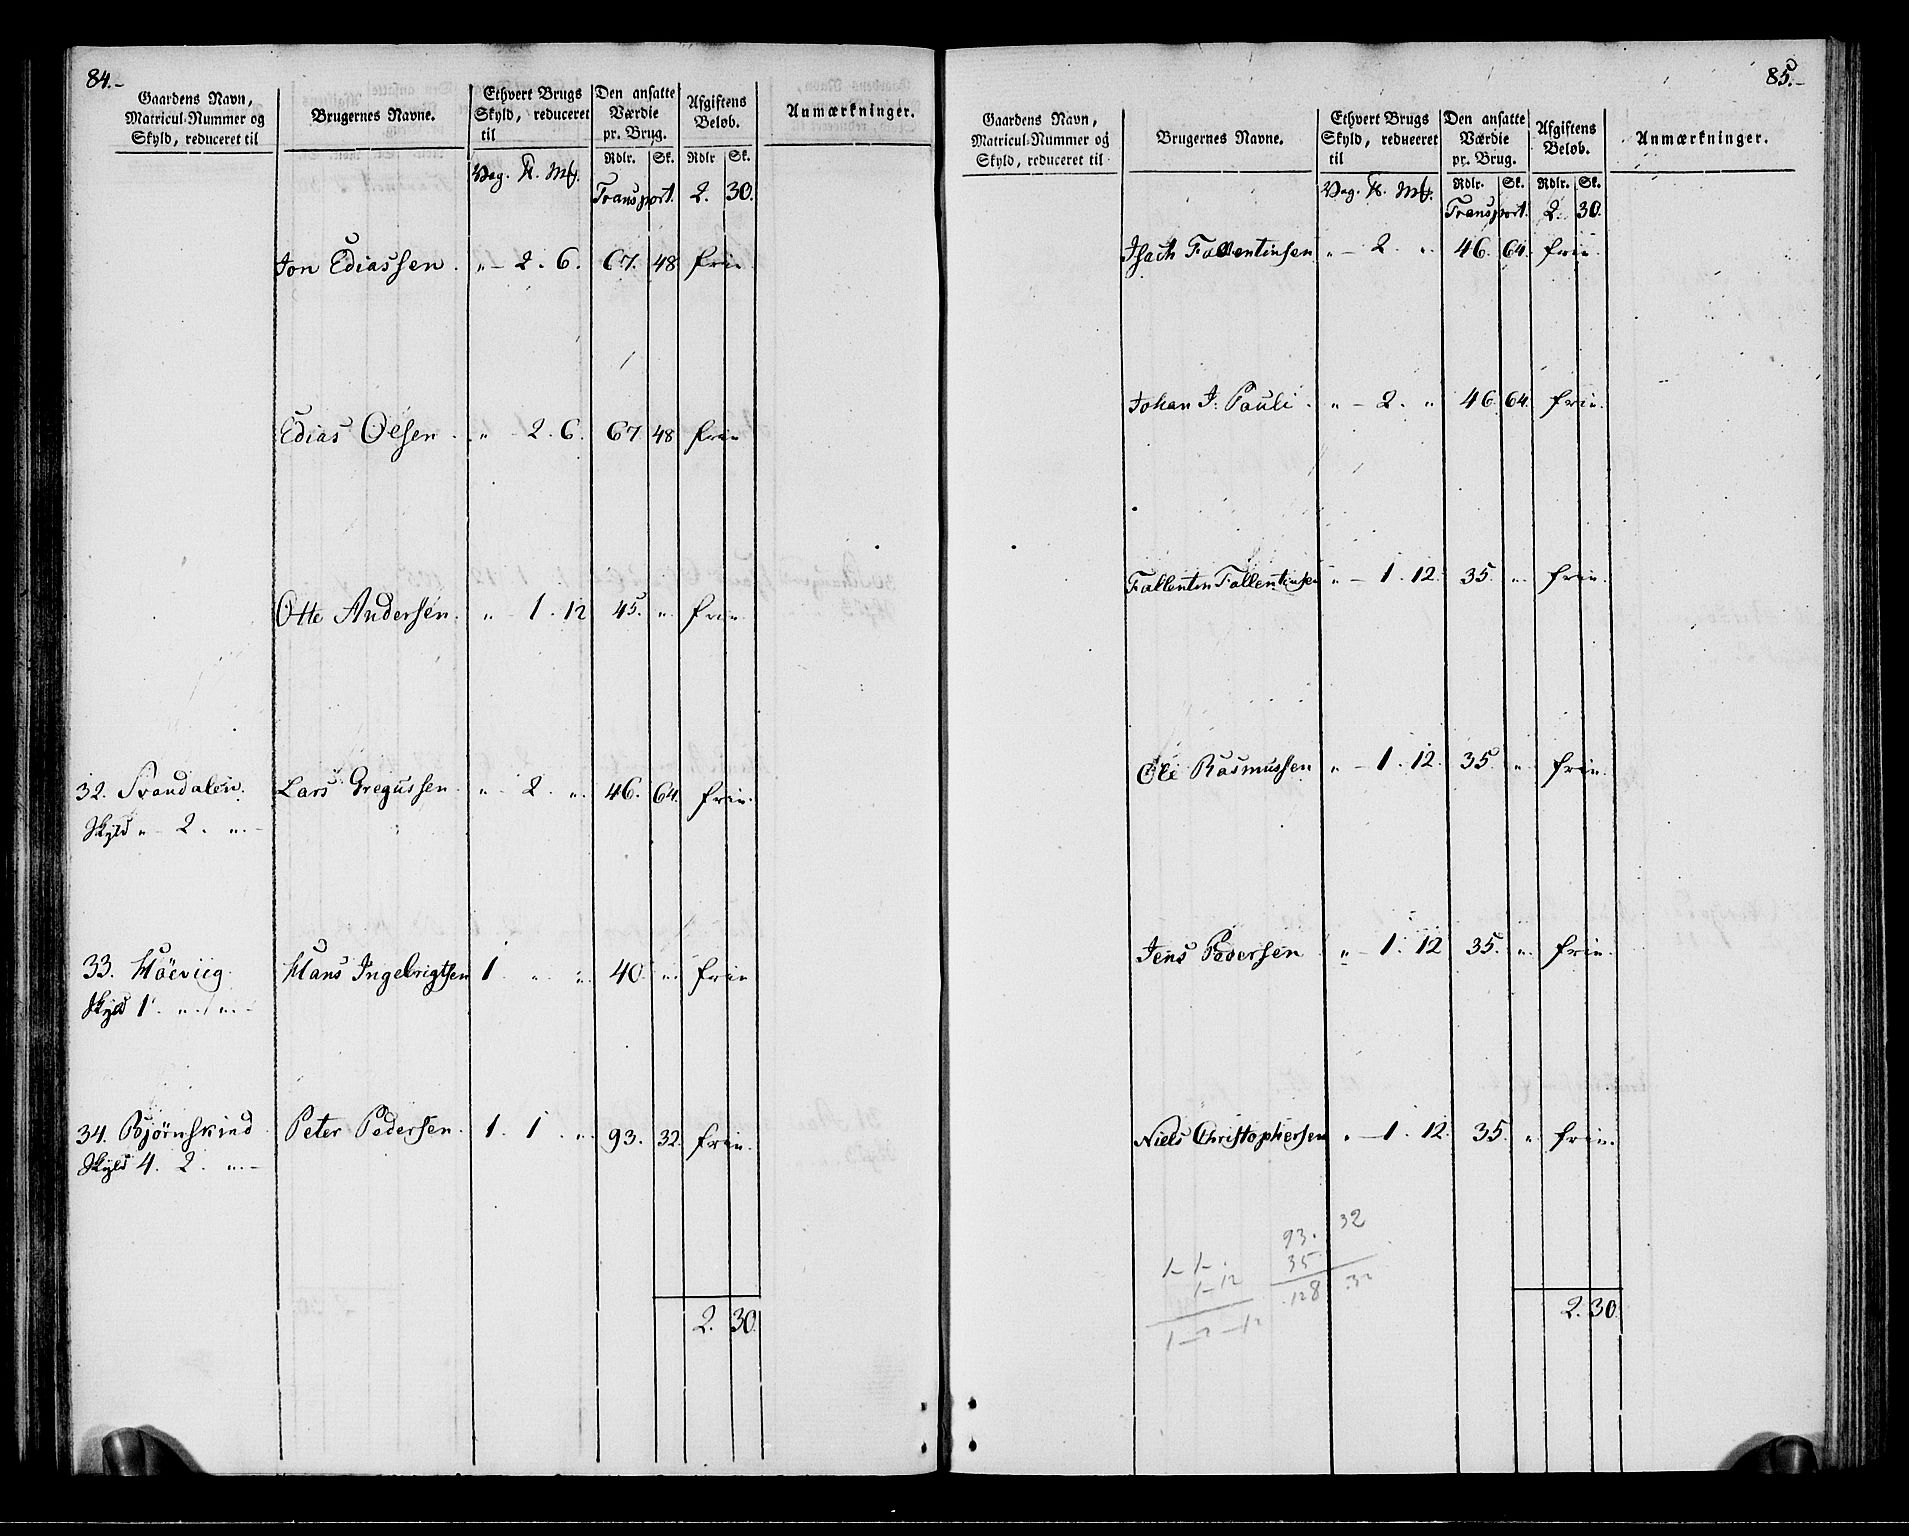 84.-
Gaardens Navn, Matricul-Nummer og Skyld, reduceret til
Brugernes Navne.
Ethvert Brugs Skyld, reduceret til
Den ansatte Værdie pr. Brug.
Afgiftens Beløb.
Anmærkninger.
Rdlr. Sk. Rdlr Sk.
Vog. Transport. 2. 30.
Jon Ediassen. " - 2. 6. 67. 48 frie
Edias Olsen. " - 2. 6. 67 48 frie
Otte Andersen. " - 1. 12 45. " frie.
32. Svandalen. Lars Gregussen. " - 2. ". 46. 64. frie.
Skyld " - 2. ". -
33. Høeviig. Hans Ingebrigtsen 1. " ". 40. " frie
Skyld 1. " " -
34. Bjørnskind Peter Pedersen. 1. 1. " 93. 32. frie.
Skyld 4. 2. ". -
2. 30.
85.-
Gaardens Navn, Matricul-Nummer og Skyld, reduceret til
Brugernes Navne.
Ethvert Brugs Skyld, reduceret til
Den ansatte Værdie pr. Brug.
Afgiftens Beløb.
Anmærkninger.
Rdlr. Sk. Rdlr. Sk.
Vog. Transport. 2. 30.
Isach Fallentinsen " - 2. " 46. 64. frie.
Johan J. Pauli. " - 2. " 46. 64. frie.
Fallentin Fallentinsen " - 1. 12. 35. " frie.
Ole Rasmussen " - 1. 12. 35. " frie.
Jens Pedersen " - 1. 12 35. " frie.
Niels Christophersen " - 1. 12. 35. " frie.
93. 32
1- 1-. 35.
1-12 128 32
1-2-12
2. 30.